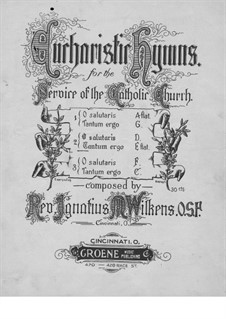 Eucharistic Hymns.
for the
Service of the Catholic Church.
1 O salutaris A flat.
Tantum ergo G.
2 O salutaris D.
Tantum ergo E flat.
3 O salutaris F.
Tantum ergo C.
composed by
Rev. Ignatius M. Wilkens, O.S.F.
Cincinnati, O.
CINCINNATI, O.
GROENE MUSIC PUBLISHING
AND ARCADE ST.